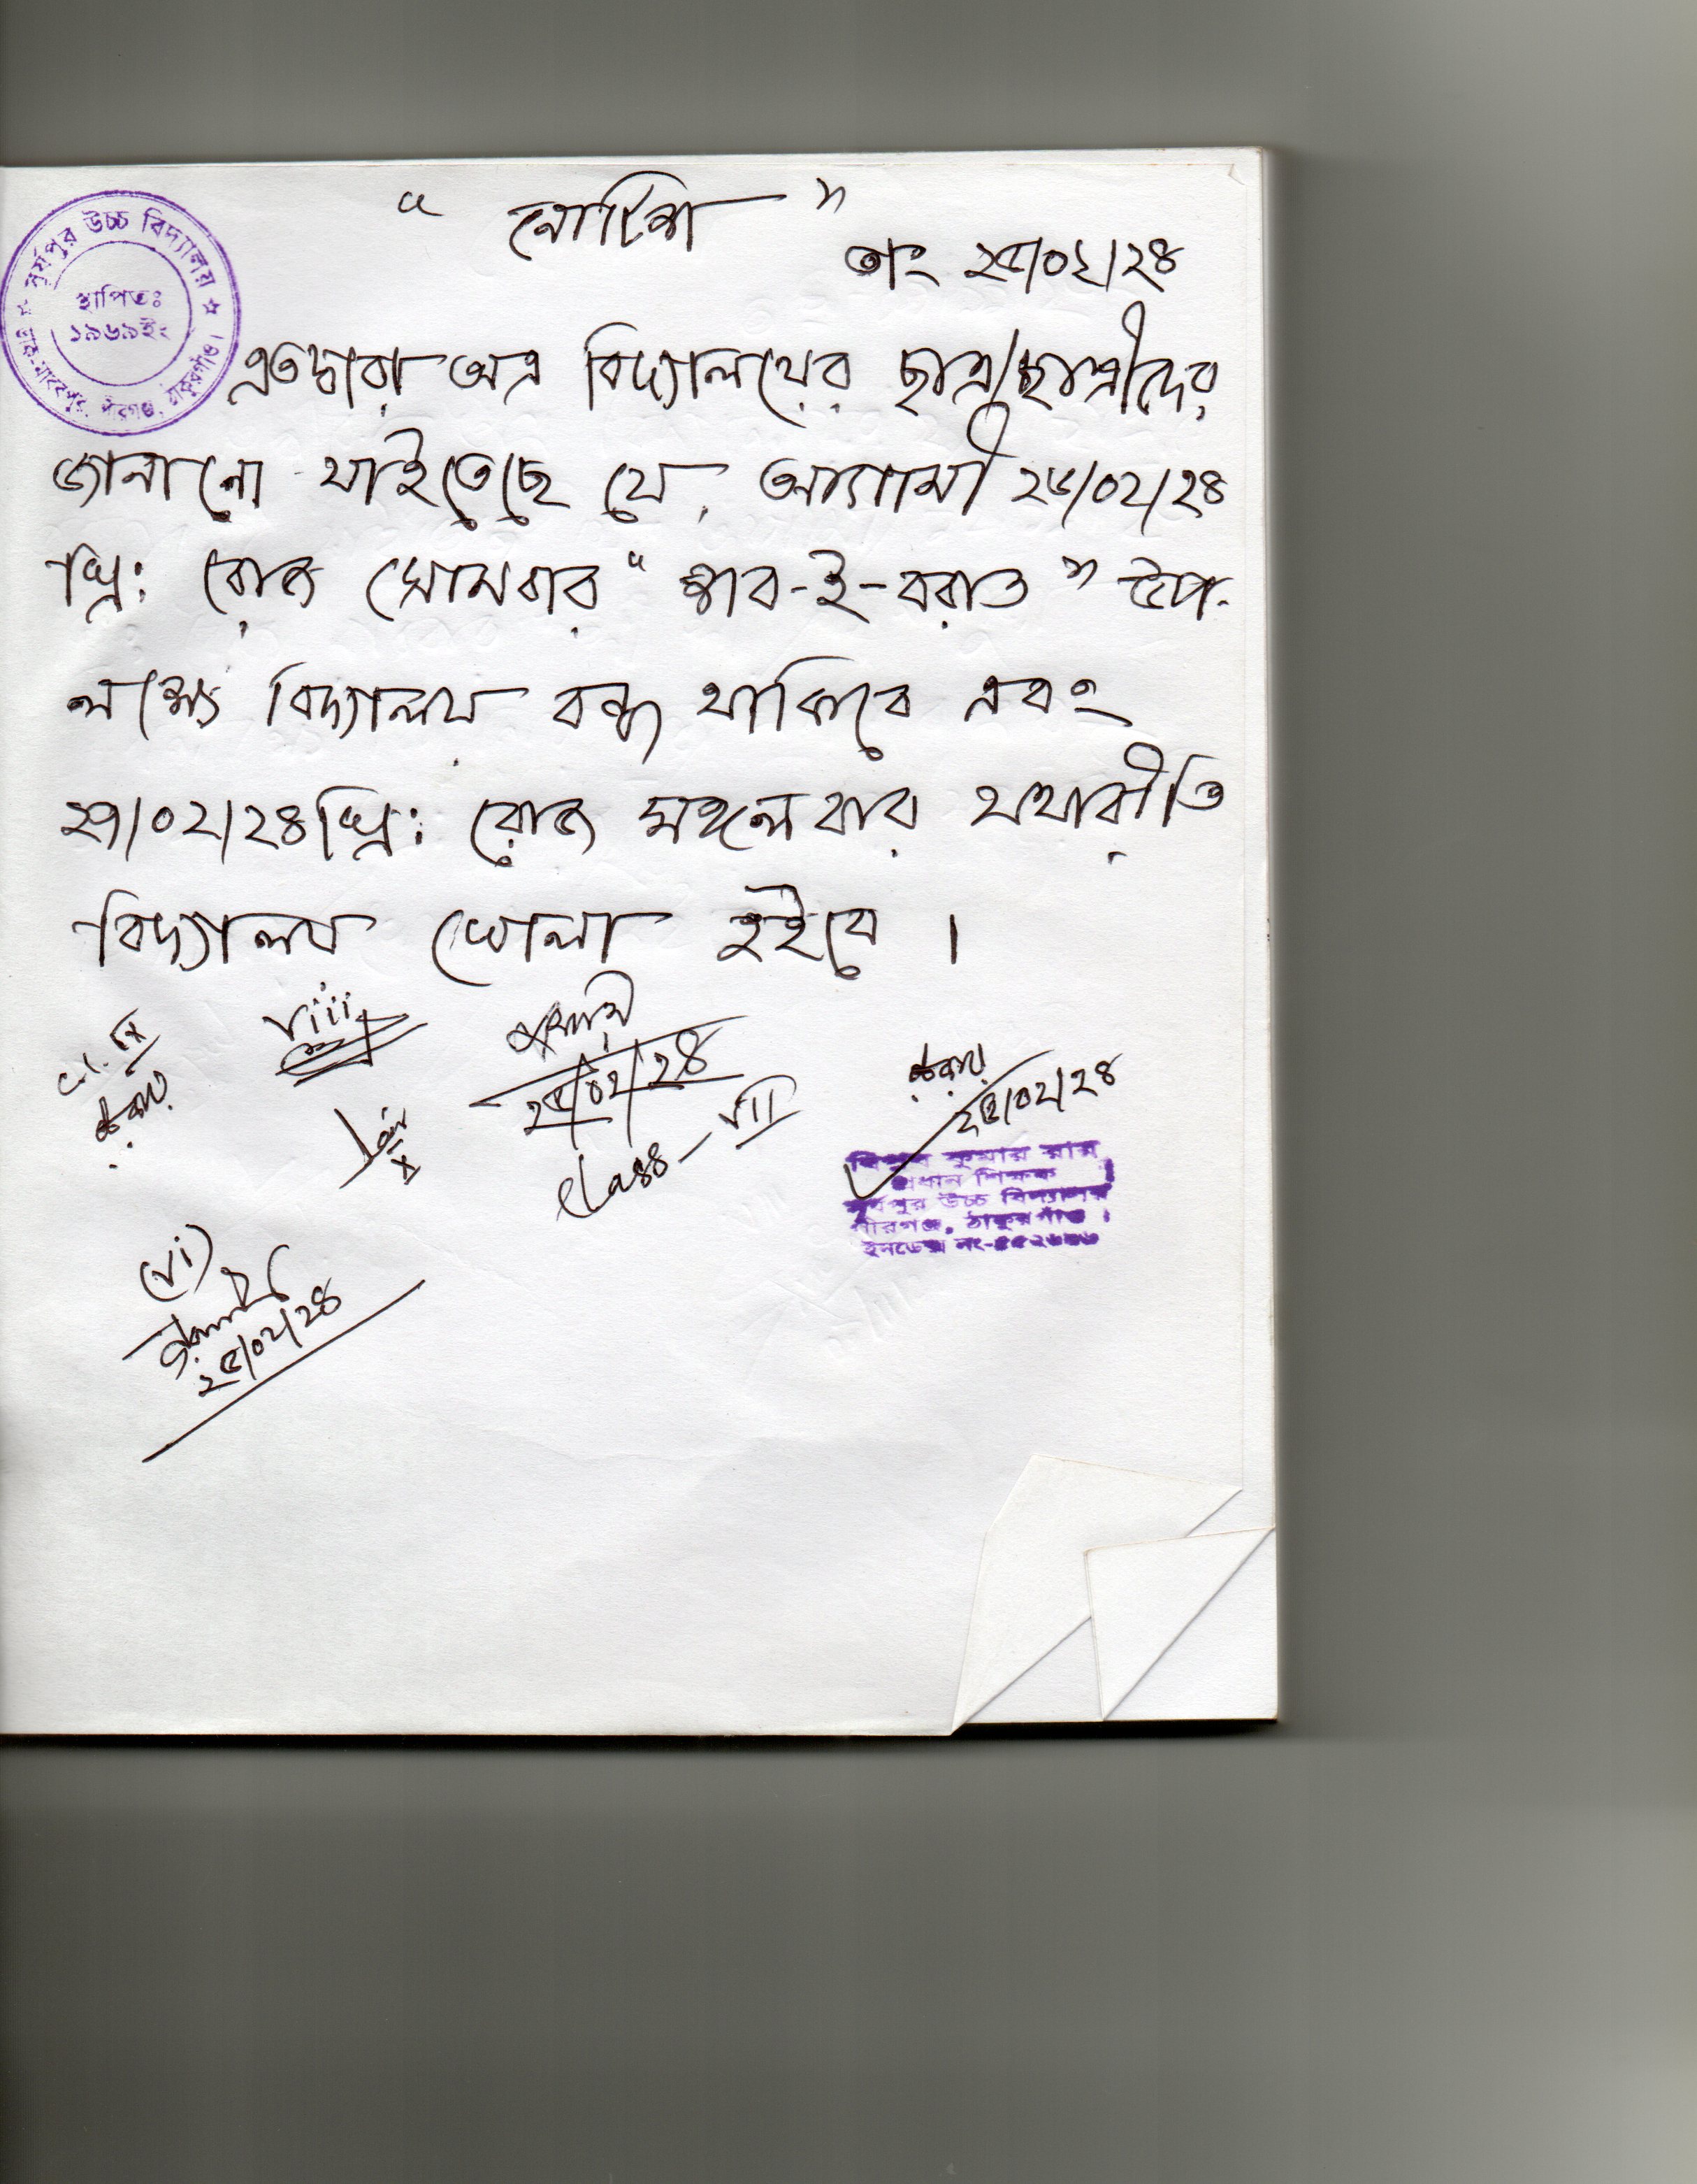 " নোটিশ "
তাং ২৫/০২/২৪
সূর্যপুর উচ্চ বিদ্যালয়
স্থাপিতঃ
১৯৬৯ইং
পীরগঞ্জ, ঠাকুরগাঁও।
এতদ্বারা অত্র বিদ্যালয়ের ছাত্র/ছাত্রীদের
জানানো যাইতেছে যে, আগামী ২৬/০২/২৪
খ্রি: রোজ সোমবার "শবে-ই-বরাত" উপ-
লক্ষ্যে বিদ্যালয় বন্ধ থাকিবে এবং
২৭/০২/২৪ খ্রি: রোজ মঙ্গলবার যথারীতি
বিদ্যালয় খোলা হইবে ।
cl. IX
viii
X
২৫/০২/২৪
Class - VII
২৫/০২/২৪
কুমার রায়
প্রধান শিক্ষক
সূর্যপুর উচ্চ বিদ্যালয়
পীরগঞ্জ, ঠাকুরগাঁও ।
ইনডেক্স নং-
(vi)
২৫/০২/২৪